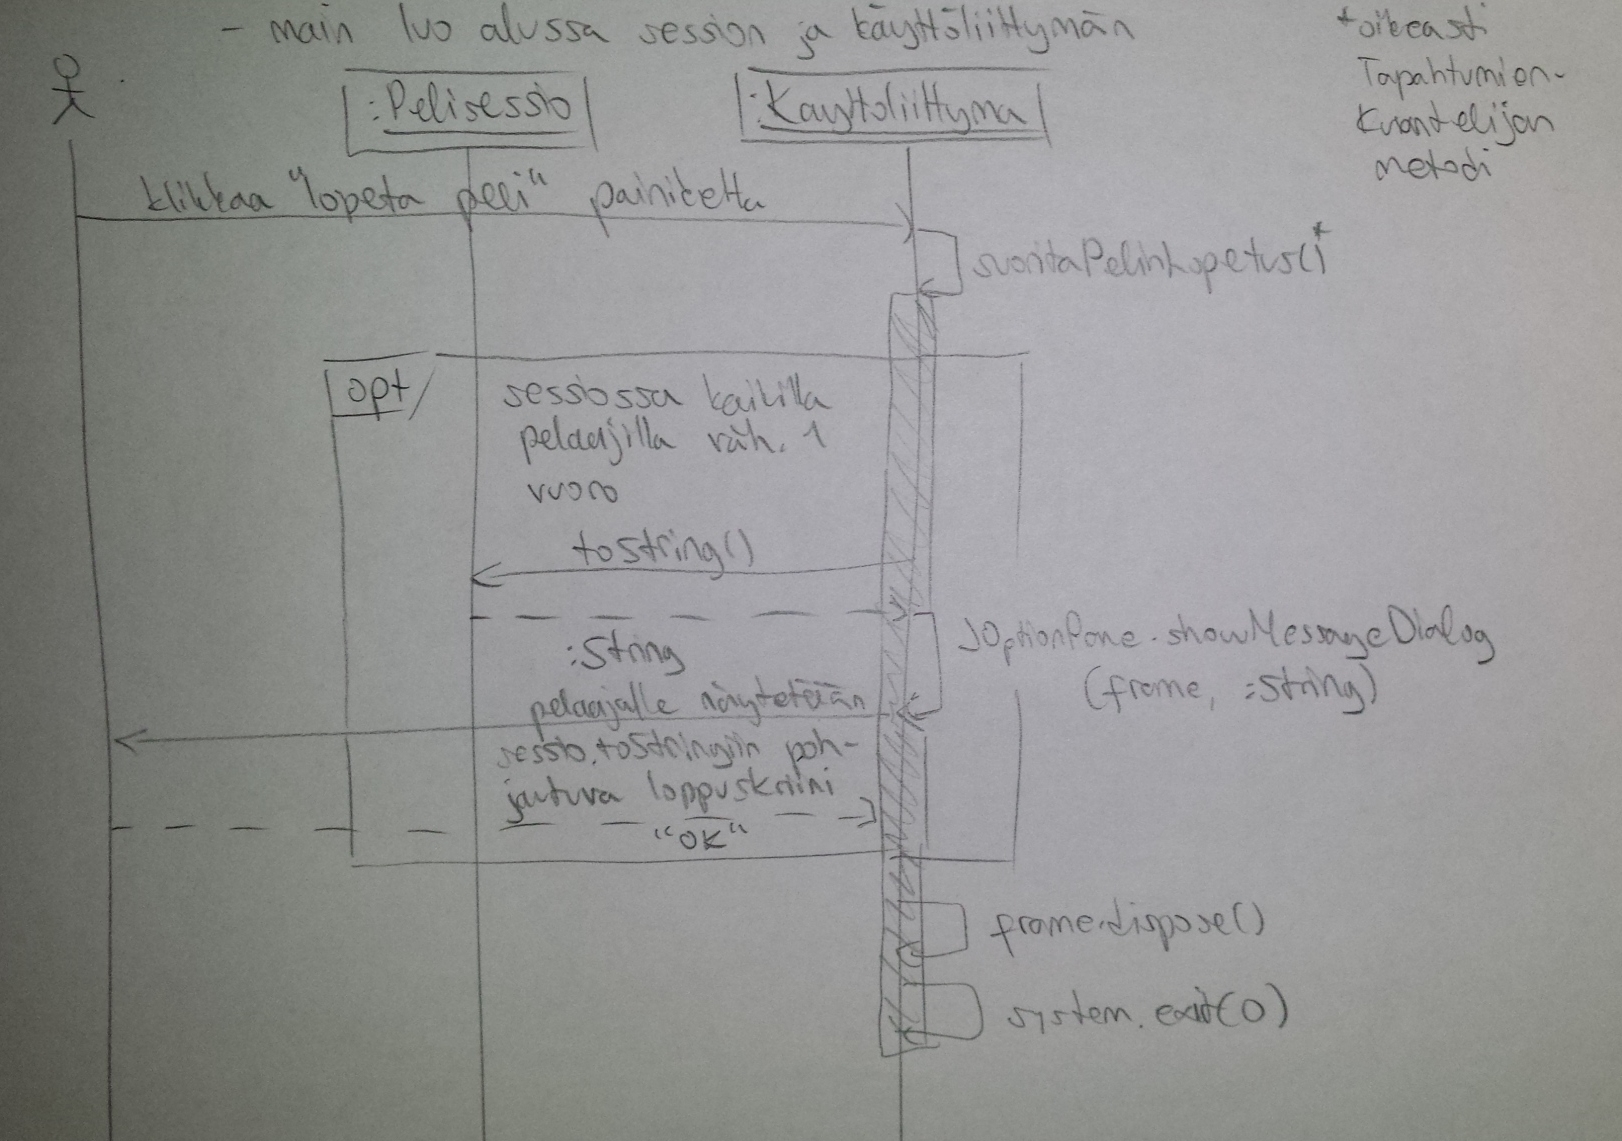 - main luo alussa session ja käyttöliittymän
*oikeasti
Tapahtumien-
kuuntelijan
metodi
:Pelisessio
:Kayttoliittyma
klikkaa "lopeta peli" painiketta
suoritaPelinLopetus()*
opt
sessiossa kaikilla
pelaajilla väh. 1
vuoro
toString()
:String
JOptionPane.showMessageDialog
(frame, :String)
pelaajalle näytetään
sessio.toStringiin poh-
jautuva loppuskriini
"OK"
frame.dispose()
system.exit(0)